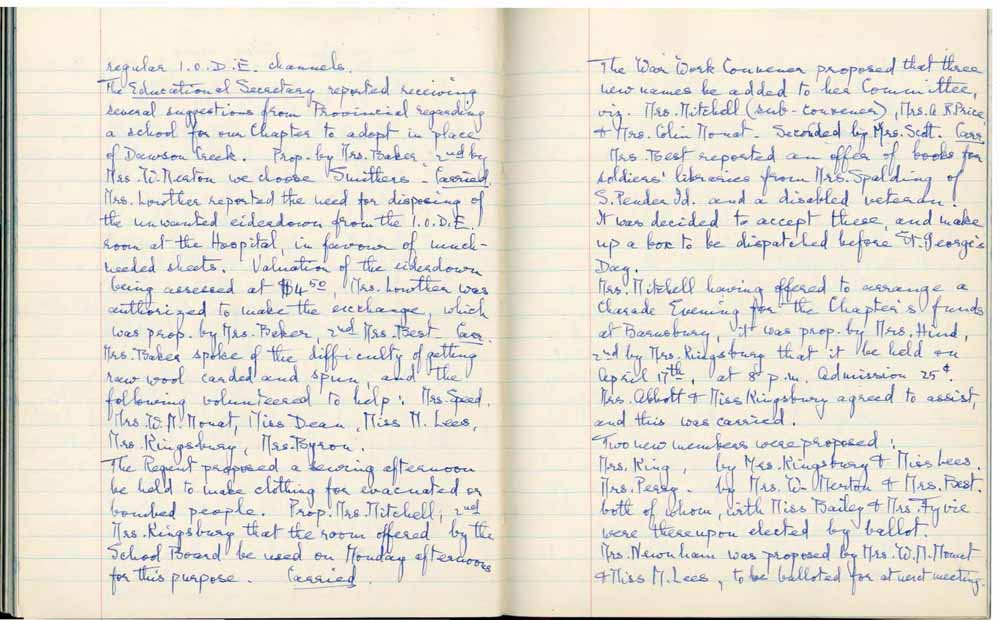 regular I.O.D.E. channels.
The Educational Secretary reported receiving
several suggestions from Provincial regarding
a school for our Chapter to adopt in place
of Dawson Creek. Prop. by Mrs. Baker, 2nd by
Mrs. W. Merton we choose Smithers - Carried.
Mrs. Lowther reported the need for disposing of
the unwanted eiderdown from the I.O.D.E.
room at the Hospital, in favour of much-
needed sheets. Valuation of the eiderdown
being assessed at $4.50, Mrs. Lowther was
authorized to make the exchange, which
was prop. by Mrs. Baker, 2nd Mrs. Best. Carr.
Mrs. Baker spoke of the difficulty of getting
raw wool carded and spun, and the
following volunteered to help: Mrs. Speed.
Mrs. W. M. Mouat, Miss Dean, Miss M. Lees,
Mrs. Kingsbury, Mrs. Byron.
The Regent proposed a sewing afternoon
be held to make clothing for evacuated or
bombed people. Prop. Mrs. Mitchell, 2nd
Mrs. Kingsbury that the room offered by the
School Board be used on Monday afternoons
for this purpose. Carried.
The War Work Convener proposed that three
new names be added to her Committee,
viz. Mrs. Mitchell (sub-convener), Mrs. A. R. Price
& Mrs. Colin Mouat. Seconded by Mrs. Scott. Carr.
Mrs. Best reported an offer of books for
soldiers' libraries from Mrs. Spalding of
S. Pender Id. and a disabled veteran.
It was decided to accept these, and make
up a box to be dispatched before St. George's
Day.
Mrs. Mitchell having offered to arrange a
Charade Evening for the Chapter's funds
at Barnsbury, it was prop. by Mrs. Hind,
2nd by Mrs. Kingsbury that it be held on
April 17th, at 8 p.m. Admission 25¢.
Mrs. Abbott & Miss Kingsbury agreed to assist,
and this was carried.
Two new members were proposed:
Mrs. King, by Mrs. Kingsbury & Miss Lees.
Mrs. Perry. by Mrs. W. Merton & Mrs. Best.
both of whom, with Miss Bailey & Mrs. Fyvie
were thereupon elected by ballot.
Mrs. Newnham was proposed by Mrs. W. M. Mouat
& Miss M. Lees, to be balloted for at next meeting.